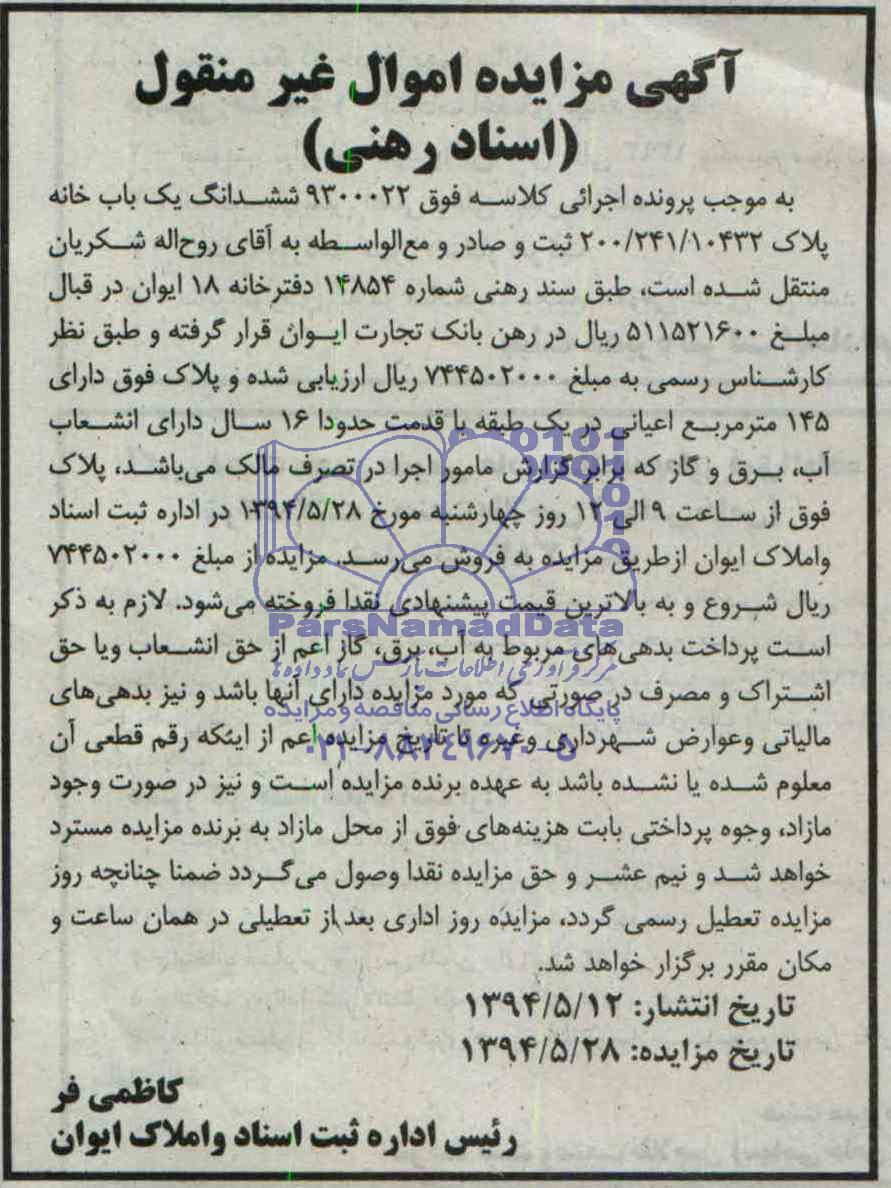 آگهی مزایده اموال غیر منقول
(اسناد رهنی)
به موجب پرونده اجرائی کلاسه فوق ۹۳۰۰۰۲۲ ششدانگ یک باب خانه
پلاک ۲۰۰/۲۴۱/۱۰۴۳۲ ثبت و صادر و مع‌الواسطه به آقای روح‌اله شکریان
منتقل شده است، طبق سند رهنی شماره ۱۴۸۵۴ دفترخانه ۱۸ ایوان در قبال
مبلغ ۵۱۱۵۲۱۶۰۰ ریال در رهن بانک تجارت ایوان قرار گرفته و طبق نظر
کارشناس رسمی به مبلغ ۷۴۴۵۰۲۰۰۰ ریال ارزیابی شده و پلاک فوق دارای
۱۴۵ مترمربع اعیانی در یک طبقه با قدمت حدودا ۱۶ سال دارای انشعاب
آب، برق و گاز که برابر گزارش مامور اجرا در تصرف مالک می‌باشد، پلاک
فوق از ساعت ۹ الی ۱۲ روز چهارشنبه مورخ ۱۳۹۴/۵/۲۸ در اداره ثبت اسناد
واملاک ایوان ازطریق مزایده به فروش می‌رسد. مزایده از مبلغ ۷۴۴۵۰۲۰۰۰
ریال شروع و به بالاترین قیمت پیشنهادی نقدا فروخته می‌شود. لازم به ذکر
است پرداخت بدهی‌های مربوط به آب، برق، گاز اعم از حق انشعاب ویا حق
اشتراک و مصرف در صورتی که مورد مزایده دارای آنها باشد و نیز بدهی‌های
مالیاتی وعوارض شهرداری وغیره تا تاریخ مزایده اعم از اینکه رقم قطعی آن
معلوم شده یا نشده باشد به عهده برنده مزایده است و نیز در صورت وجود
مازاد، وجوه پرداختی بابت هزینه‌های فوق از محل مازاد به برنده مزایده مسترد
خواهد شد و نیم عشر و حق مزایده نقدا وصول می‌گردد ضمنا چنانچه روز
مزایده تعطیل رسمی گردد، مزایده روز اداری بعد از تعطیلی در همان ساعت و
مکان مقرر برگزار خواهد شد.
تاریخ انتشار: ۱۳۹۴/۵/۱۲
تاریخ مزایده: ۱۳۹۴/۵/۲۸
کاظمی فر
رئیس اداره ثبت اسناد واملاک ایوان
ParsNamadData
مرکز فرآوری اطلاعات پارس نماد داده‌ها
پایگاه اطلاع رسانی مناقصه و مزایده
۰۲۱-۸۸۳۴۹۶۷۰-۵